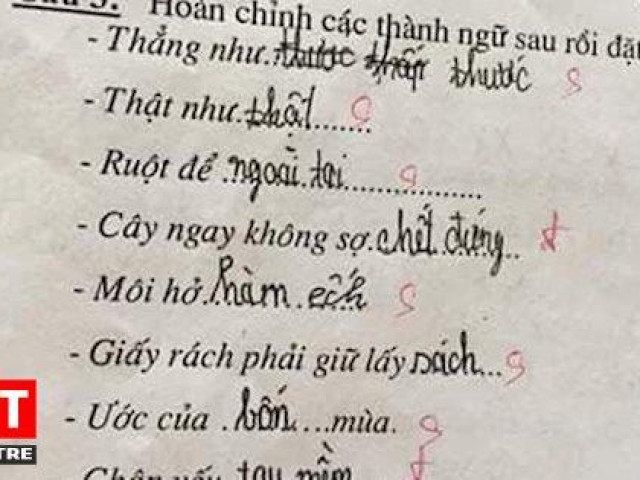 Câu 3: Hoàn chỉnh các thành ngữ sau rồi đặt
- Thẳng như thước thấp thước
- Thật như thật.......
- Ruột để ngoài tai..................
- Cây ngay không sợ chết đứng..
- Môi hở hàm ếch
- Giấy rách phải giữ lấy sách...
- Ước của .bốn....mùa.
Chân yếu tay mềm
T
TRE